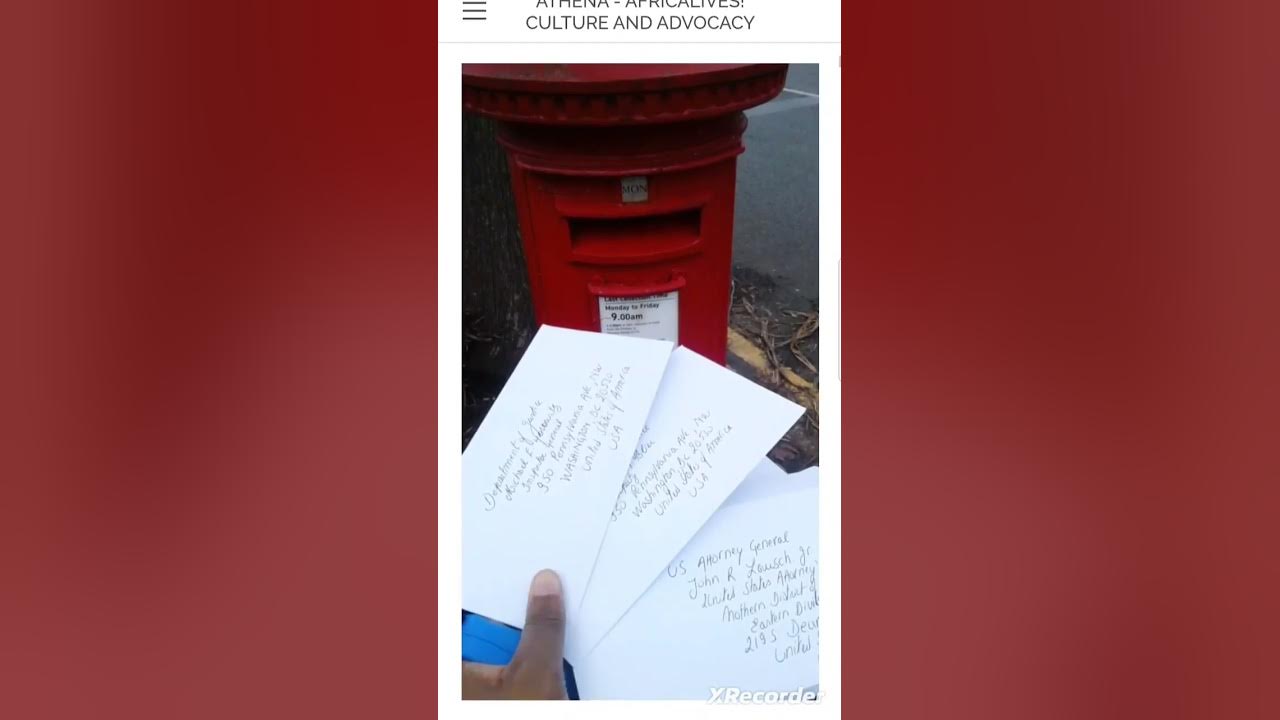 ATHENA - AFRICALIVES!
CULTURE AND ADVOCACY
MON
Last Collection Time
Monday to Friday
9.00am
Department of Justice
Michael E
Inspector General
950 Pennsylvania Ave, NW
WASHINGTON, DC 20530
United States of America
USA
950 Pennsylvania Ave, NW
Washington, DC 20530
United States of America
USA
US Attorney General
John R Lausch Jr
United States Attorney'
Northern District of
Eastern
219 S Dear
United
XRecorder